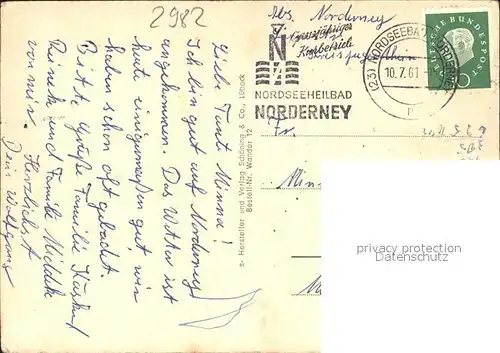 2982
Abs. Norderney
N
Ganzjähriger
Kurbetrieb
NORDSEEHEILBAD
NORDERNEY
(23) NORDSEEBAD NORDERNEY
10.7.61
DEUTSCHE BUNDESPOST
10
Fr.
Min
privacy protection
Datenschutz
Hersteller und Verlag Schöning & Co., Lübeck
Bestell-Nr. Wander 12
Liebe Tante Minna!
Ich bin gut auf Norderney
angekommen. Das Wetter ist
heute einigermaßen gut, wir
haben schon oft gebadet.
Bitte Grüße Familie
und Familie
von mir. Herzlichst
Dein Wolfgang